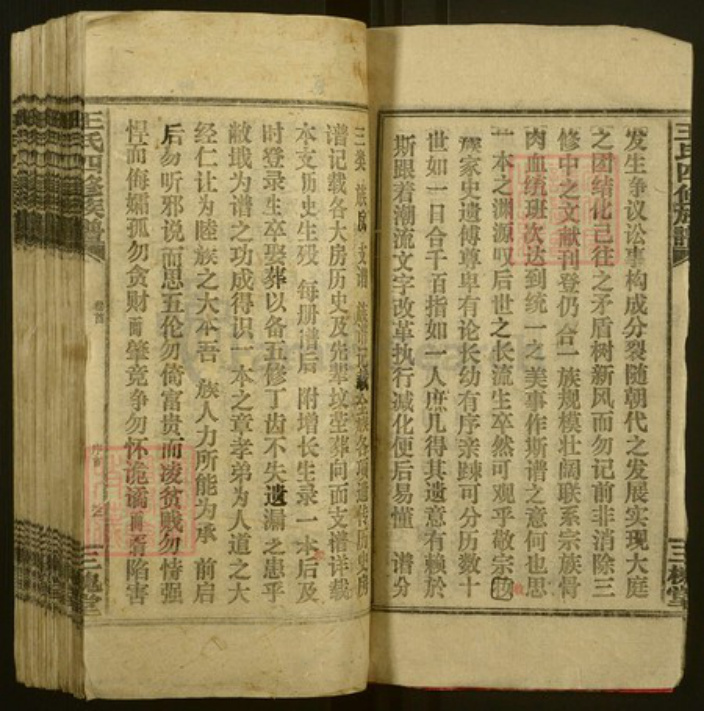 发生争议讼事构成分裂随朝代之发展实现大庭
之团结化已往之矛盾树新风而勿记前非消除三
修中之文献刊登仍合一族规模壮阔联系宗族骨
肉血统班次达到统一之美事作斯谱之意何也思
一本之渊源叹后世之长流生卒然可观乎敬宗
族家史遗傅尊卑有论长幼有序亲踈可分历数十
世如一日合千百指如一人庶几得其遗意有赖於
斯跟着潮流文字改革执行减化便后易懂 谱分
三类 族房支谱 族谱记载全族各项遗传历史房
谱记载各大房历史及先辈坟茔葬向面支谱详载
本支历史生殁 每册谱后 附增长生录一本后及
时登录生卒娶葬以备五修丁齿不失遗漏之患乎
敝戢为谱之功成得识一本之章孝弟为人道之大
经仁让为睦族之大本吾 族人力所能为承 前启
后勿听邪说而思五伦勿倚富贵而凌贫贱勿恃强
悍而侮孀孤勿贪财而肇竞争勿怀诡谲而胥陷害
王氏四修族谱
卷首
三槐堂
王氏四修族谱
三槐堂